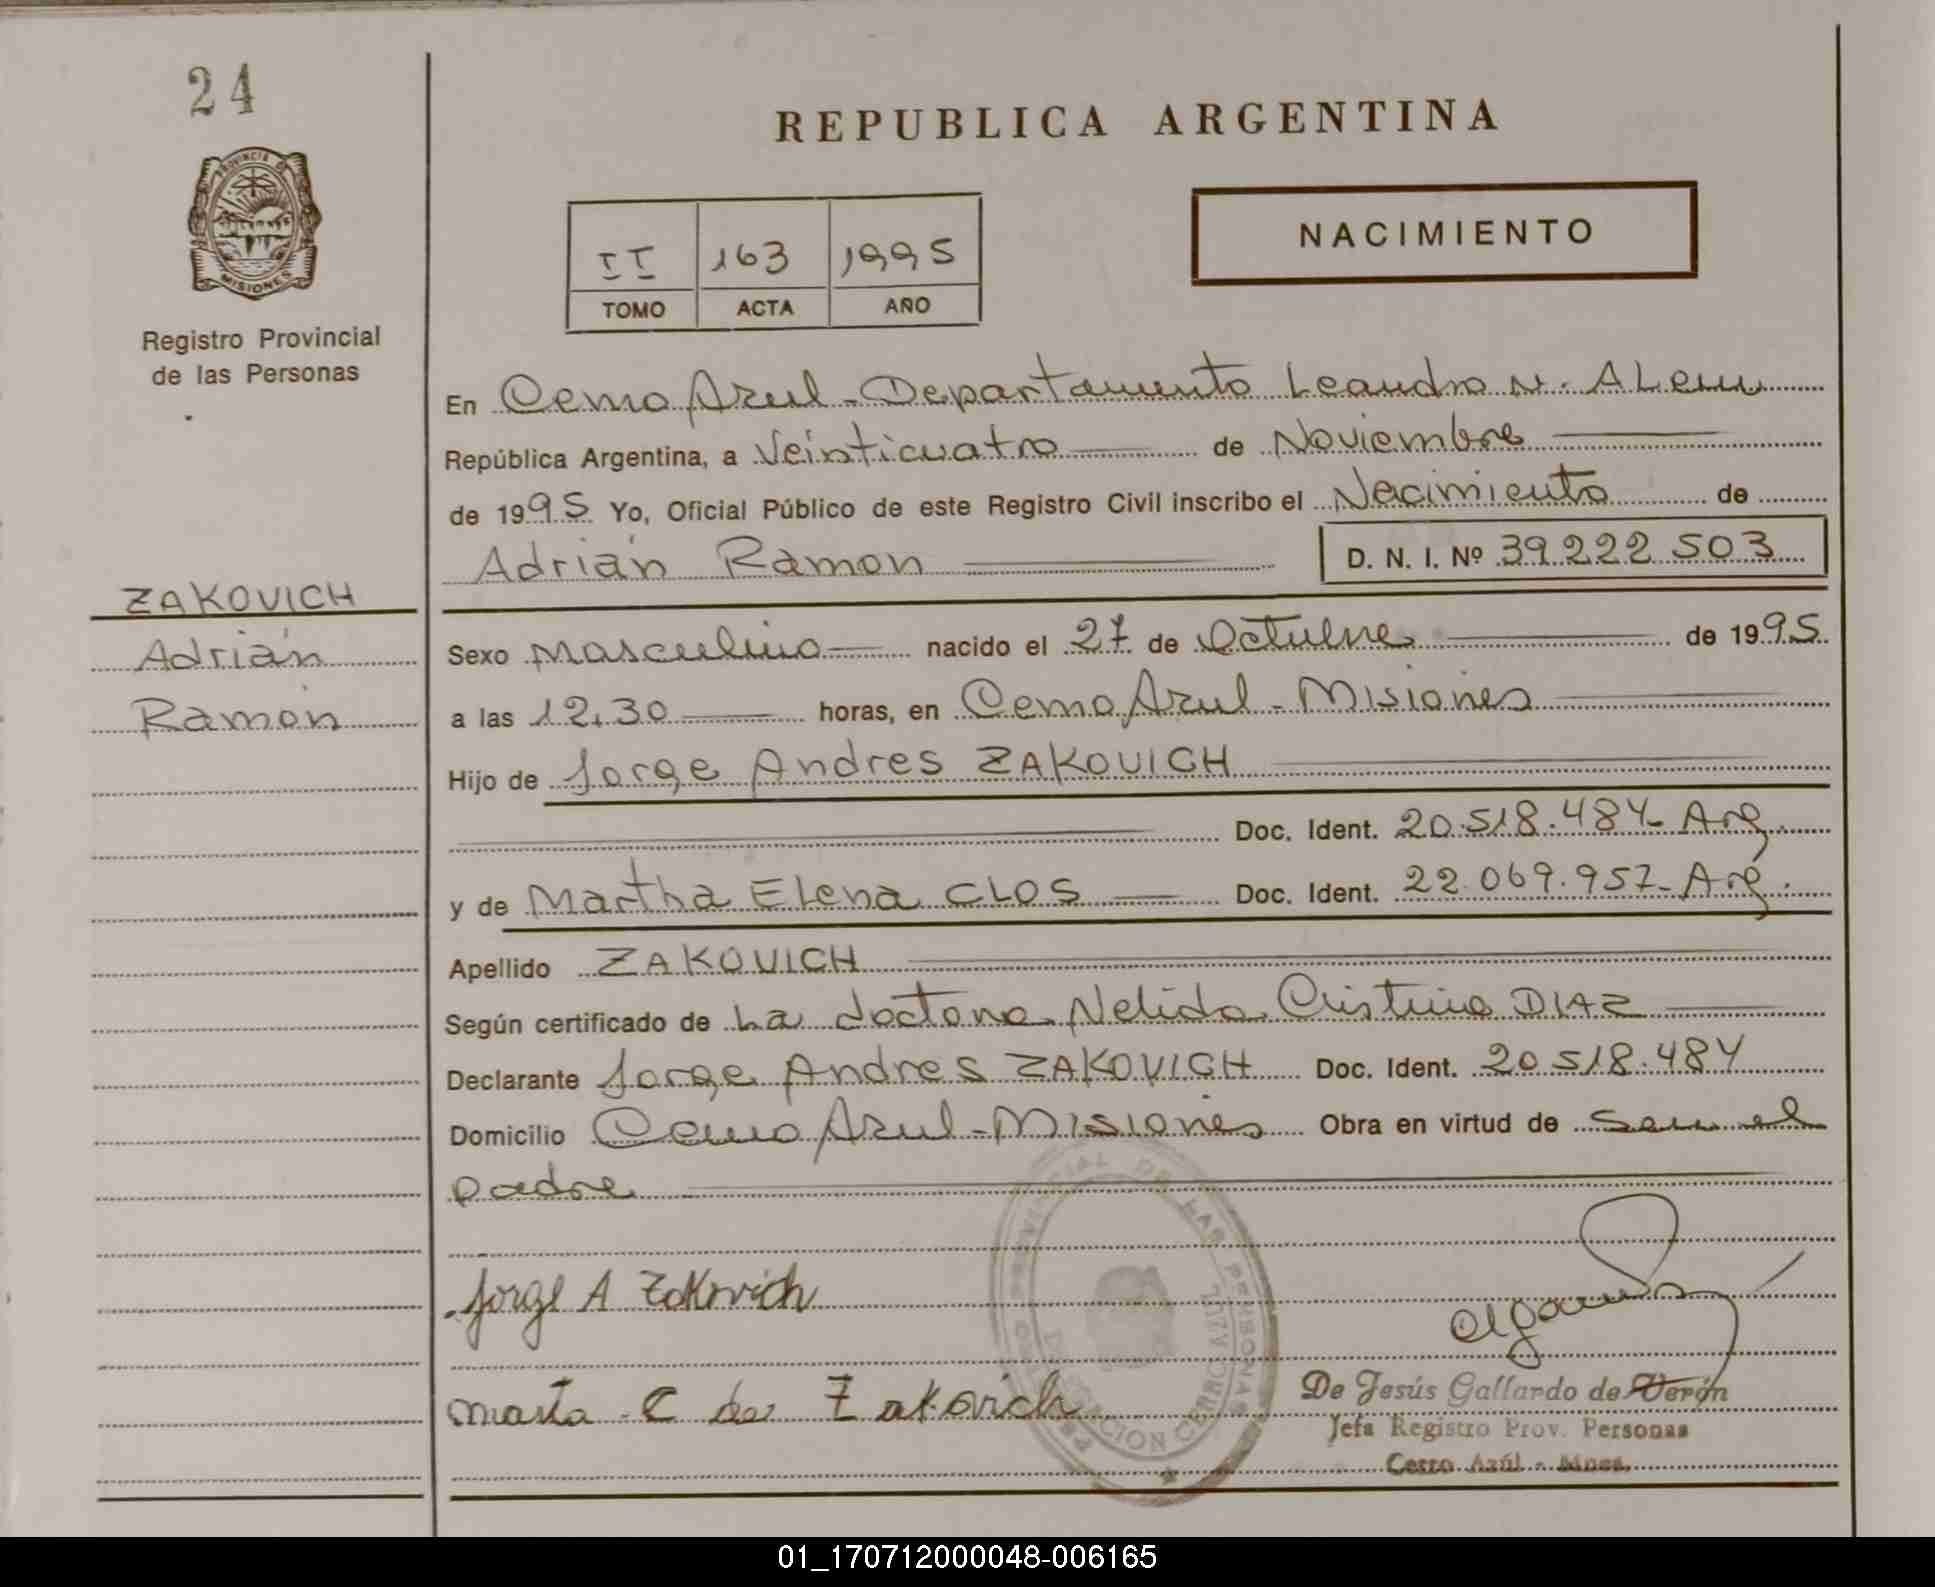 24
PROVINCIA DE
MISIONES
Registro Provincial
de las Personas
ZAKOVICH
Adrián
Ramón
REPUBLICA ARGENTINA
II 163 1995
TOMO ACTA AÑO
NACIMIENTO
En Cerro Azul - Departamento Leandro N. ALem
República Argentina, a Veinticuatro de Noviembre
de 1995 Yo, Oficial Público de este Registro Civil inscribo el Nacimiento de
Adrián Ramon D. N. I. Nº 39.222.503
Sexo Masculino nacido el 27 de Octubre de 1995
a las 12,30 horas, en Cerro Azul - Misiones
Hijo de Jorge Andres ZAKOVICH
Doc. Ident. 20.518.484 - Arg.
y de Martha Elena CLOS Doc. Ident. 22.069.957 - Arg.
Apellido ZAKOVICH
Según certificado de La doctora Nelida Cristina DIAZ
Declarante Jorge Andres ZAKOVICH Doc. Ident. 20.518.484
Domicilio Cerro Azul - Misiones Obra en virtud de ser el
padre
Jorge A Zakovich
Marta C de Zakovich
De Jesús Gallardo de Verón
Jefa Registro Prov. Personas
Cerro Azúl - Mnes.
PROVINCIAL DE LAS PERSONAS
CERRO AZUL
01_170712000048-006165